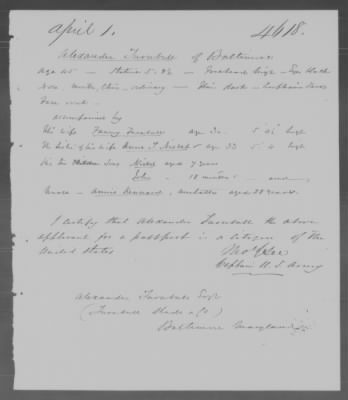 April 1. 4618.
Alexander Turnbull of Baltimore
age 45 - Stature 5. - Forehead high - Eyes
Nose - Mouth - ordinary - Hair dark - Complexion
Face oval -
accompanied by
His wife Fanny Turnbull age 5 high
The sister of his wife Anna T. age 33 5 high
His two Sons aged 7 years
John - 18 months - and
nurse - Annie mulatto aged 28 years.
I certify that Alexander Turnbull the above
applicant for a passport is a citizen of the
United States
Captain U.S. Army
Alexander Turnbull Esqr
(Turnbull Slade & Co)
Baltimore Maryland